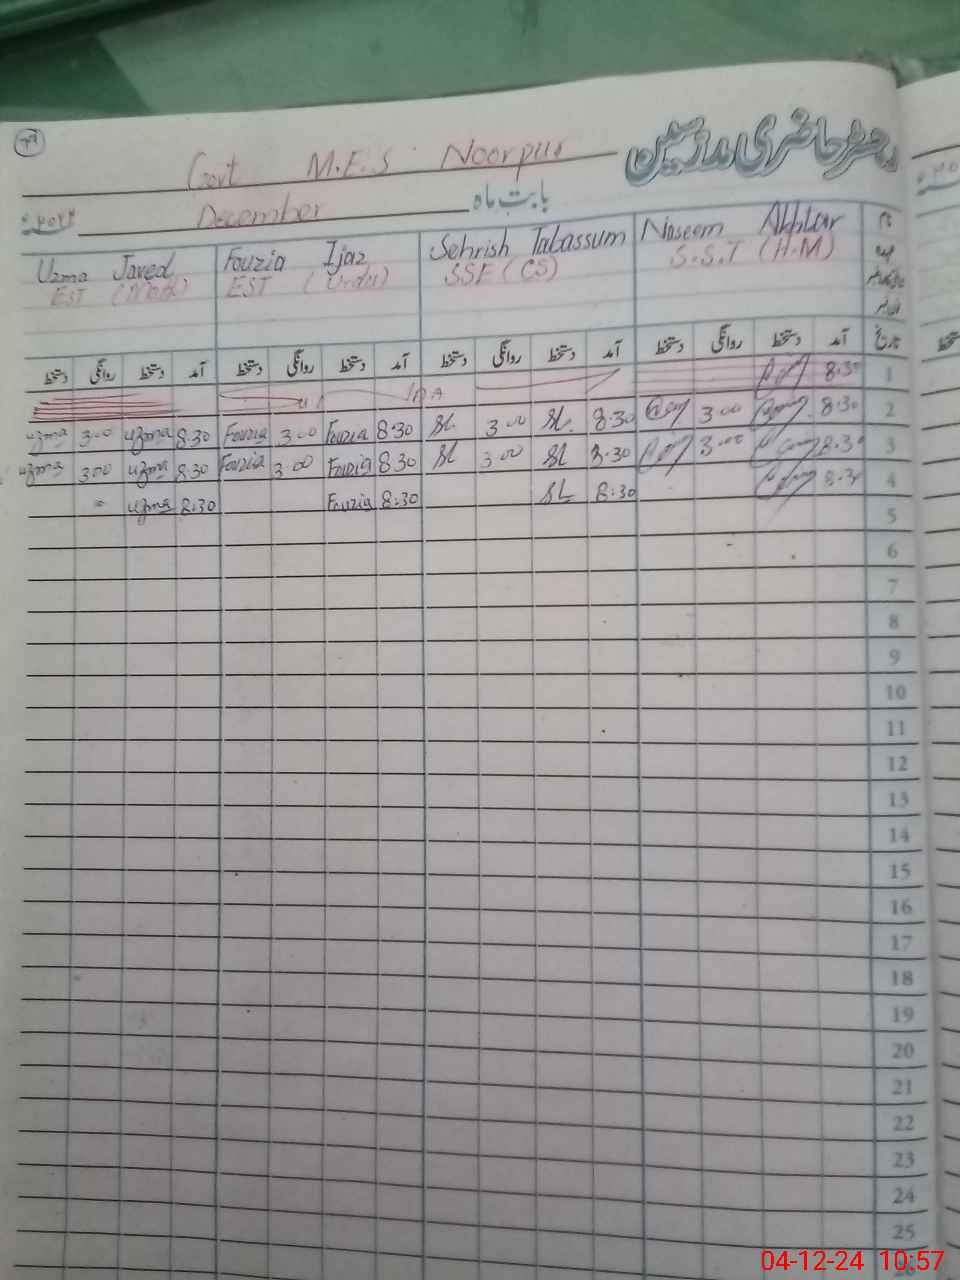 رجسٹر حاضری مدرسین
Govt M.E.S Noorpur
بابت ماہ December
نام Naseem Akhtar Sehrish Tabassum Fouzia Ijaz Uzma Javed
عہدہ S.S.T (H.M) SSE (CS) EST (Urdu) EST (Math)
تاریخ آمد دستخط روانگی دستخط آمد دستخط روانگی دستخط آمد دستخط روانگی دستخط آمد دستخط روانگی دستخط
1 8:30
2 8:30 3:00 8:30 SL 3:00 SL 8:30 Fouzia 3:00 Fouzia 8:30 uzma 3:00 uzma
3 8:30 3:00 8:30 SL 3:00 SL 8:30 Fouzia 3:00 Fouzia 8:30 uzma 3:00 uzma
4 8:30 8:30 SL 8:30 Fouzia 8:30 uzma
5
6
7
8
9
10
11
12
13
14
15
16
17
18
19
20
21
22
23
24
25
04-12-24 10:57